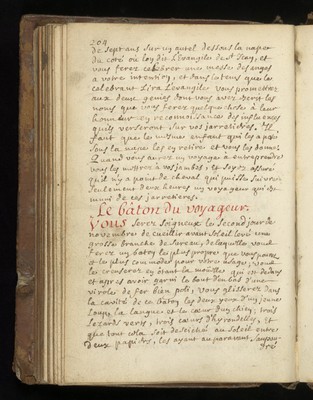 204
de sept ans sur un autel dessous la nape
du coté ou lon dit l'evangile de St Jean, et
vous ferez celebrer une messe des anges
a votre intention, et dans le tems que le
celebrant lira l'evangile vous promettrez
aux deux genies dont vous avez ecrit les
noms que vous ferez quelque chose a leur
honneur en reconnoissance des influences
quils verseront sur vos jarretieres. Il
faut que le meme enfant qui les a mis
sous la nape les en retire et vous les donne.
Quand vous aurez un voyage a entreprendre
vous les mettrez a vos jambes, et soyez assuré
quil ny a point de cheval qui puisse suivre
seulement deux heures un voyageur qui est
muni de ces jarretieres.
Le bâton du voyageur.
Vous serez soigneux le second jour de
novembre de cueillir avant soleil levé une
grosse branche de sureau, de laquelle vous
ferez un baton le plus propre que vous pourez
et le plus commode pour votre usage, vous
le creuserez en ôtant la moëlle qui est dedans
et apres avoir garni le bout d'en bas d'une
virole de fer bien poli, vous glisserez dans
la cavité de ce bâton les deux yeux d'un jeune
loup, la langue et le cœur d'un chien, trois
lezards verts, trois cœurs d'hyrondelles, et
que tout cela soit desseiché au soleil entre
deux papiers, les ayant auparavant saupou-
dré